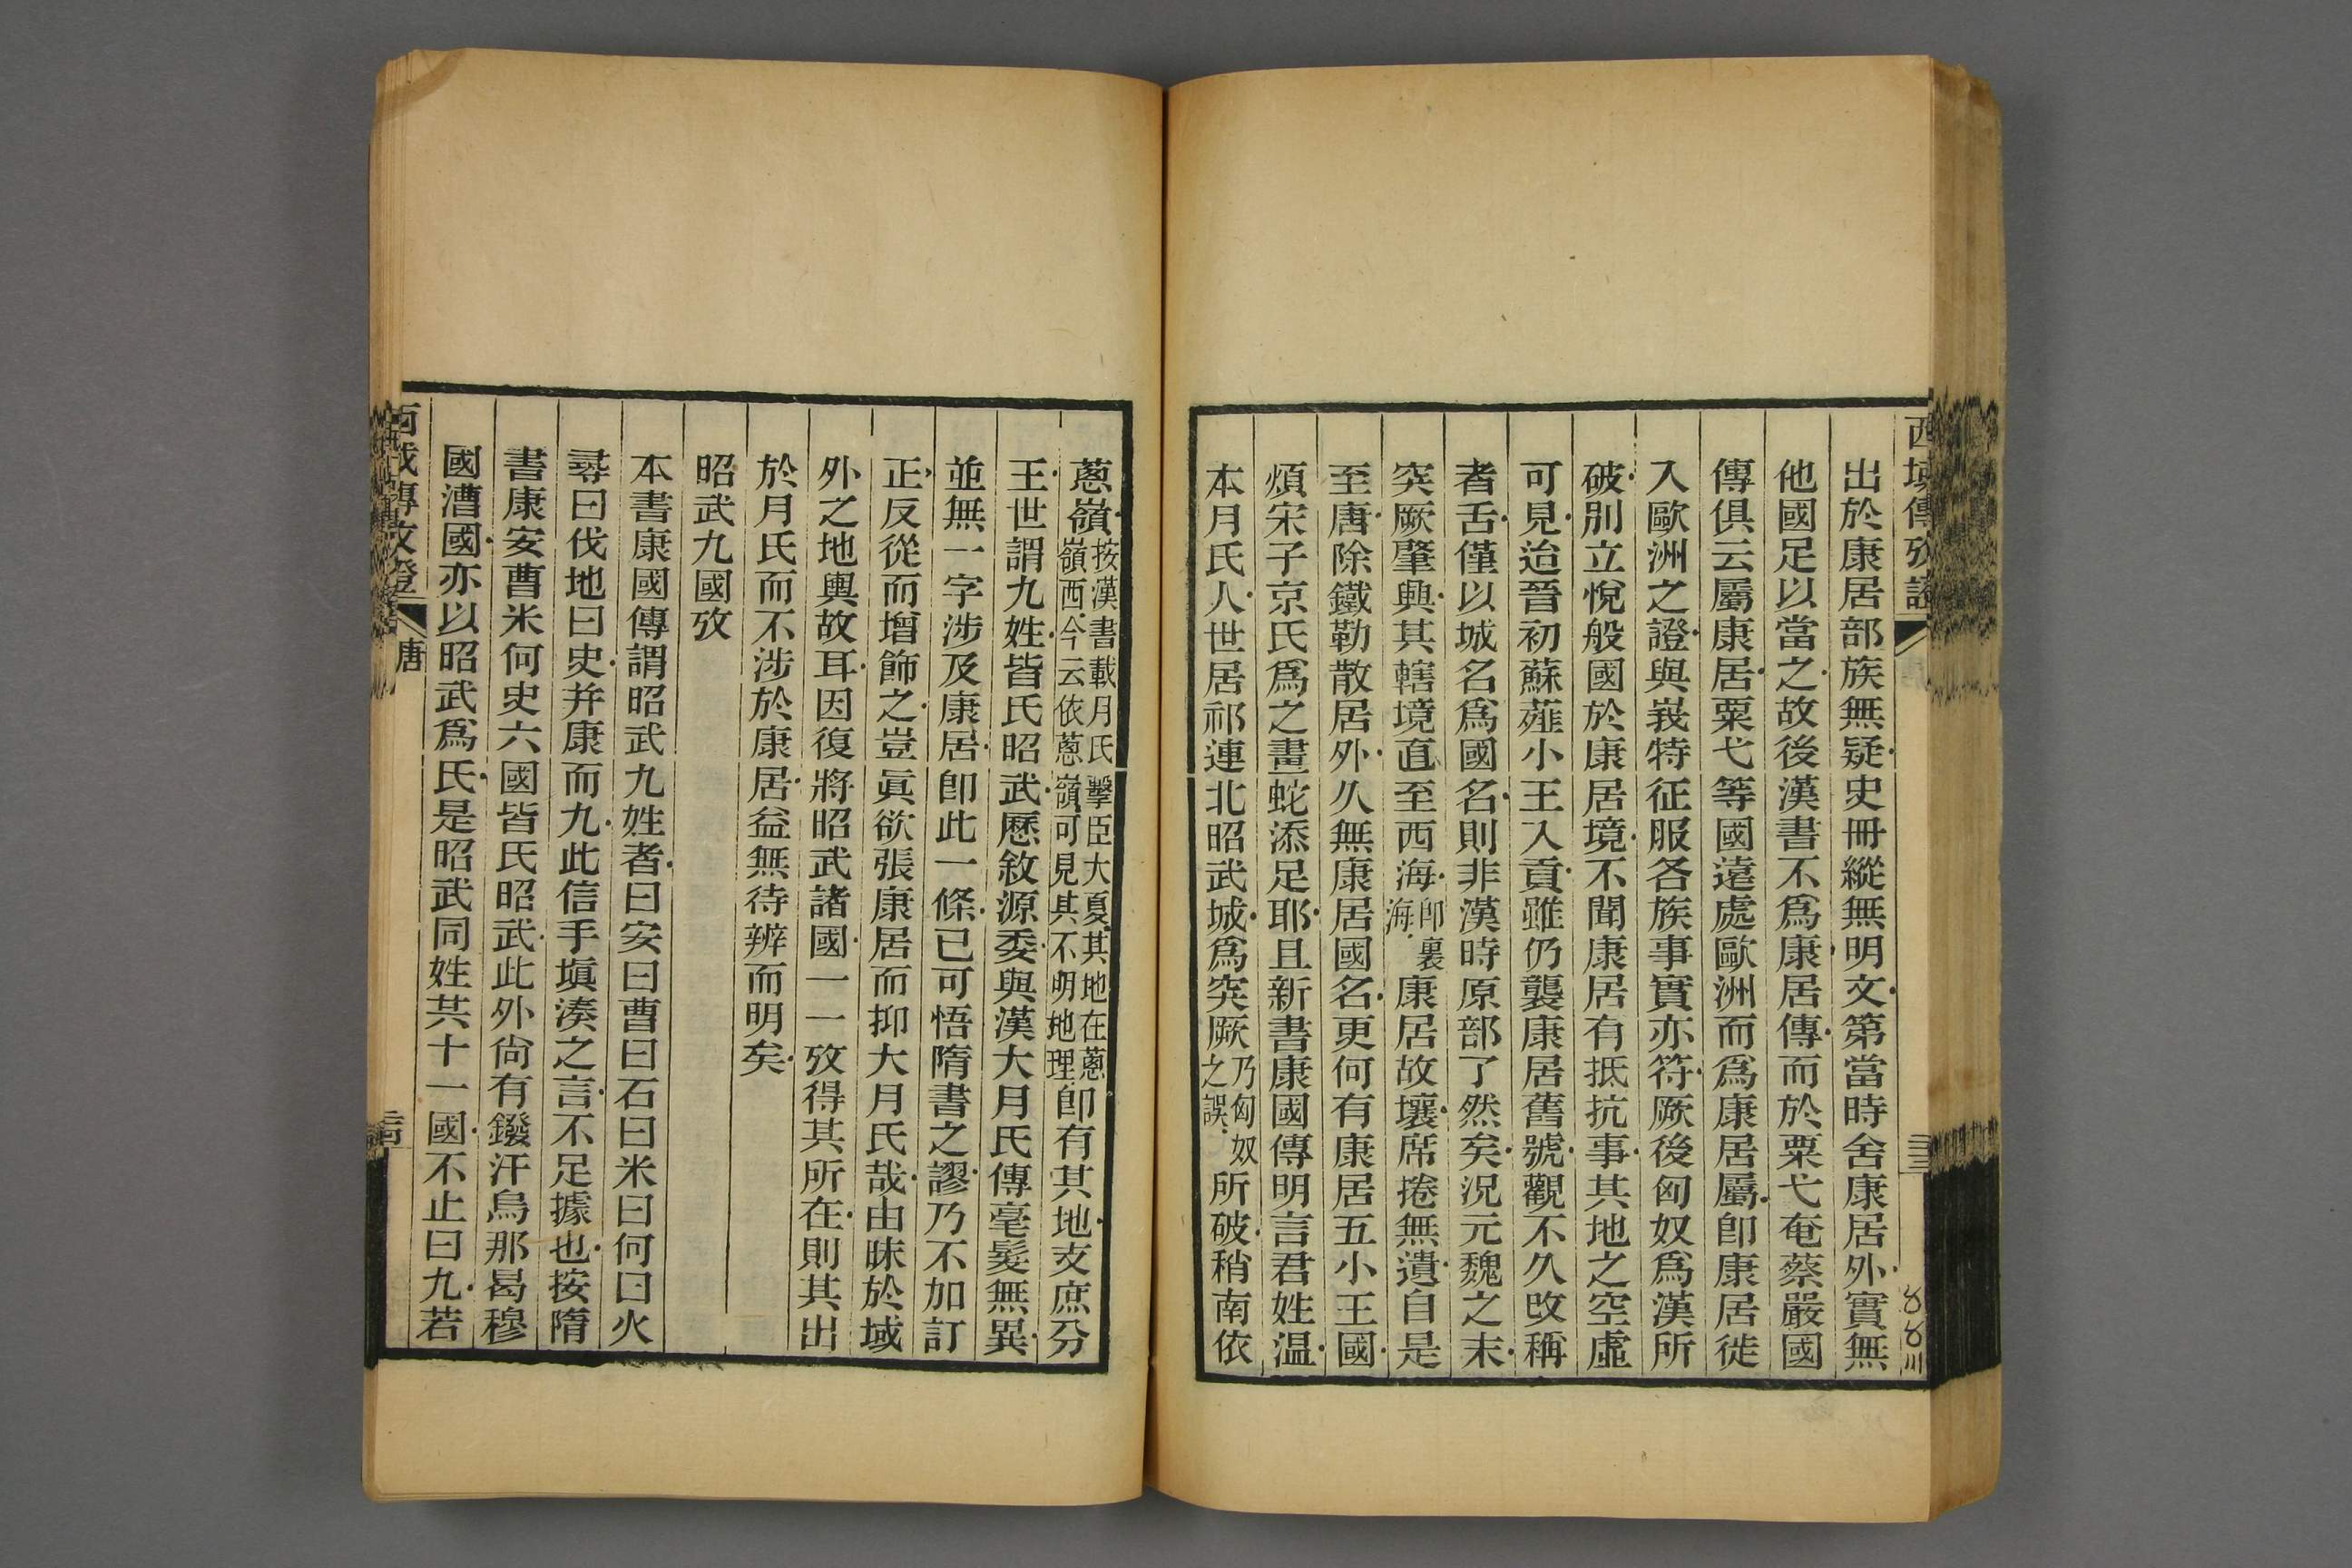 西域傳攷證
三三
出於康居部族無疑史冊縱無明文第當時舍康居外實無
他國足以當之故後漢書不爲康居傳而於粟弋奄蔡嚴國
傳俱云屬康居粟弋等國遠處歐洲而爲康居屬卽康居徙
入歐洲之證與峩特征服各族事實亦符厥後匈奴爲漢所
破別立悅般國於康居境不聞康居有抵抗事其地之空虛
可見迨晉初蘇薤小王入貢雖仍襲康居舊號觀不久改稱
者舌僅以城名爲國名則非漢時原部了然矣況元魏之末
突厥肇興其轄境直至西海卽裏海康居故壤席捲無遺自是
至唐除鐵勒散居外久無康居國名更何有康居五小王國
煩宋子京氏爲之畫蛇添足耶且新書康國傳明言君姓温
本月氏人世居祁連北昭武城爲突厥乃匈奴之誤所破稍南依
蔥嶺按漢書載月氏擊臣大夏其地在蔥嶺西今云依蔥嶺可見其不明地理卽有其地支庶分
王世謂九姓皆氏昭武歷敘源委與漢大月氏傳毫髮無異
並無一字涉及康居卽此一條已可悟隋書之謬乃不加訂
正反從而增飾之豈眞欲張康居而抑大月氏哉由昧於域
外之地輿故耳因復將昭武諸國一一攷得其所在則其出
於月氏而不涉於康居益無待辨而明矣
昭武九國攷
本書康國傳謂昭武九姓者曰安曰曹曰石曰米曰何曰火
尋曰伐地曰史并康而九此信手塡湊之言不足據也按隋
書康安曹米何史六國皆氏昭武此外尙有鏺汗烏那曷穆
國漕國亦以昭武爲氏是昭武同姓共十一國不止曰九若
西域傳攷證
唐